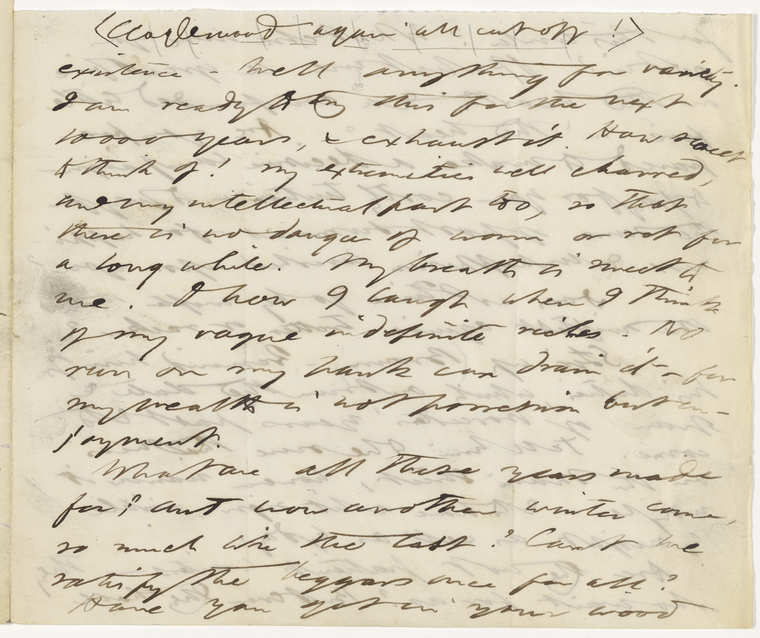 (Eaglewood again all cut off!)
existence - Well anything for variety.
I am ready to try this for the next
10000 years, & exhaust it. How sweet
to think of! my extremities well charred,
and my intellectual part too, so that
there is no danger of worm or rot for
a long while. My breath is sweet to
me. O how I laugh when I think
of my vague indefinite riches. No
run on my bank can drain it - for
my wealth is not possession but en-
joyment.
What are all these years made
for? and now another winter comes,
so much like the last? Cant we
satisfy the beggars once for all?
Have you got in your wood